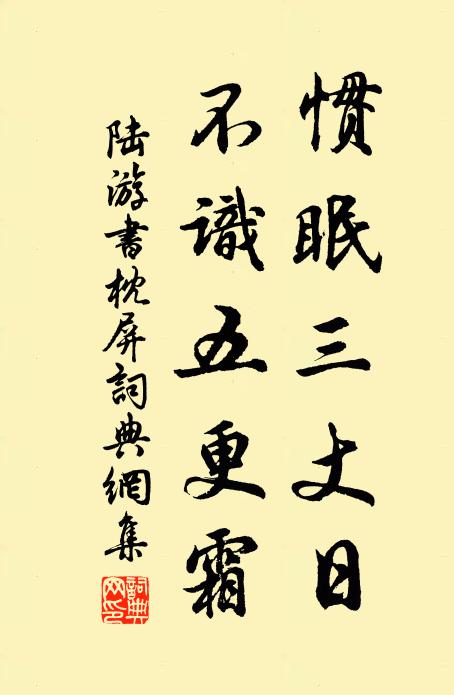 慣眠三丈日
不識五更霜
陸游書枕屏詞典網集
詞典網印